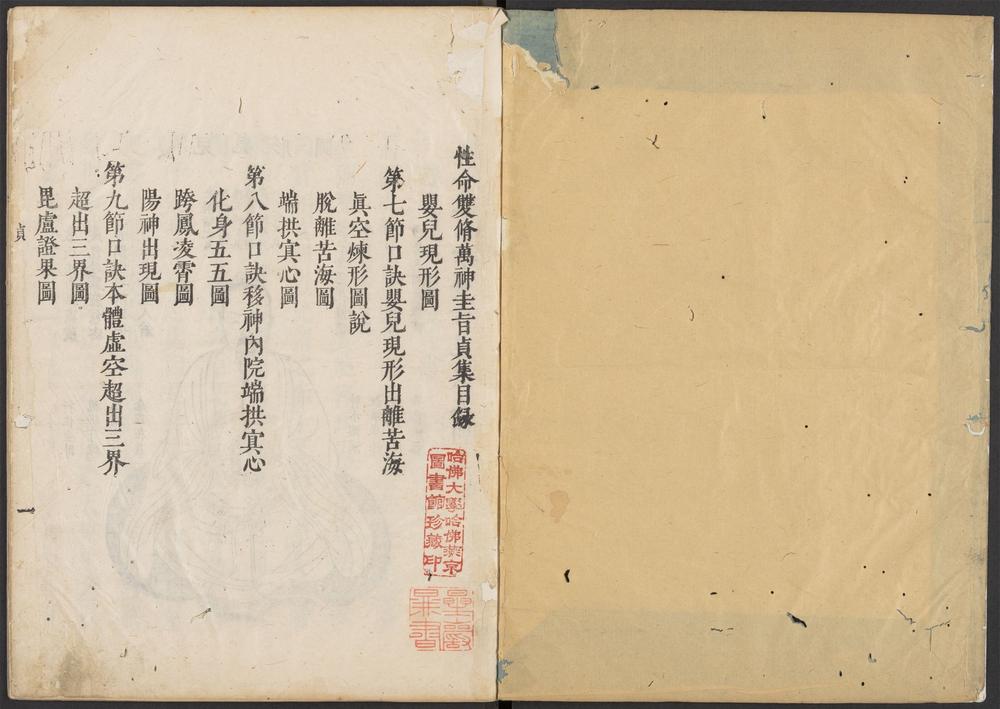 性命雙脩萬神圭旨貞集目録
嬰兒現形圖
第七節口訣嬰兒現形出離苦海
眞空煉形圖說
脫離苦海圖
端拱冥心圖
第八節口訣移神內院端拱冥心
化身五五圖
跨鳳凌霄圖
陽神出現圖
第九節口訣本體虛空超出三界
超出三界圖
毘盧證果圖
貞
一
哈佛大學哈佛燕京
圖書館珍藏印